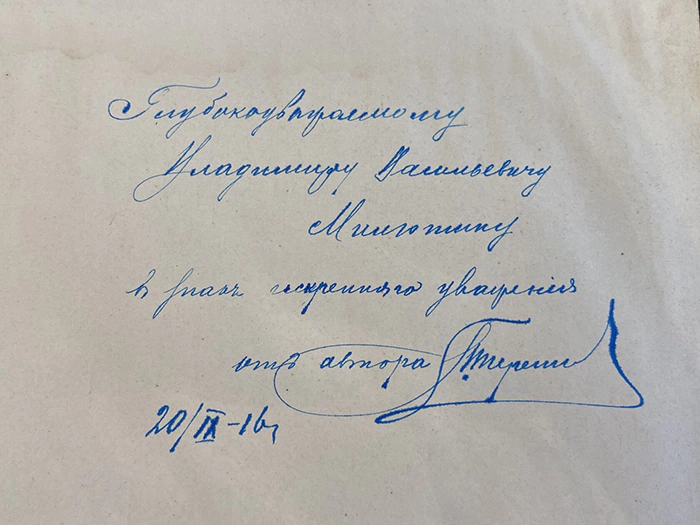 Глубокоуважаемому
Владимиру Васильевичу
Милютину
в знакъ искренняго уваженія
отъ автора
20/IX-16г.